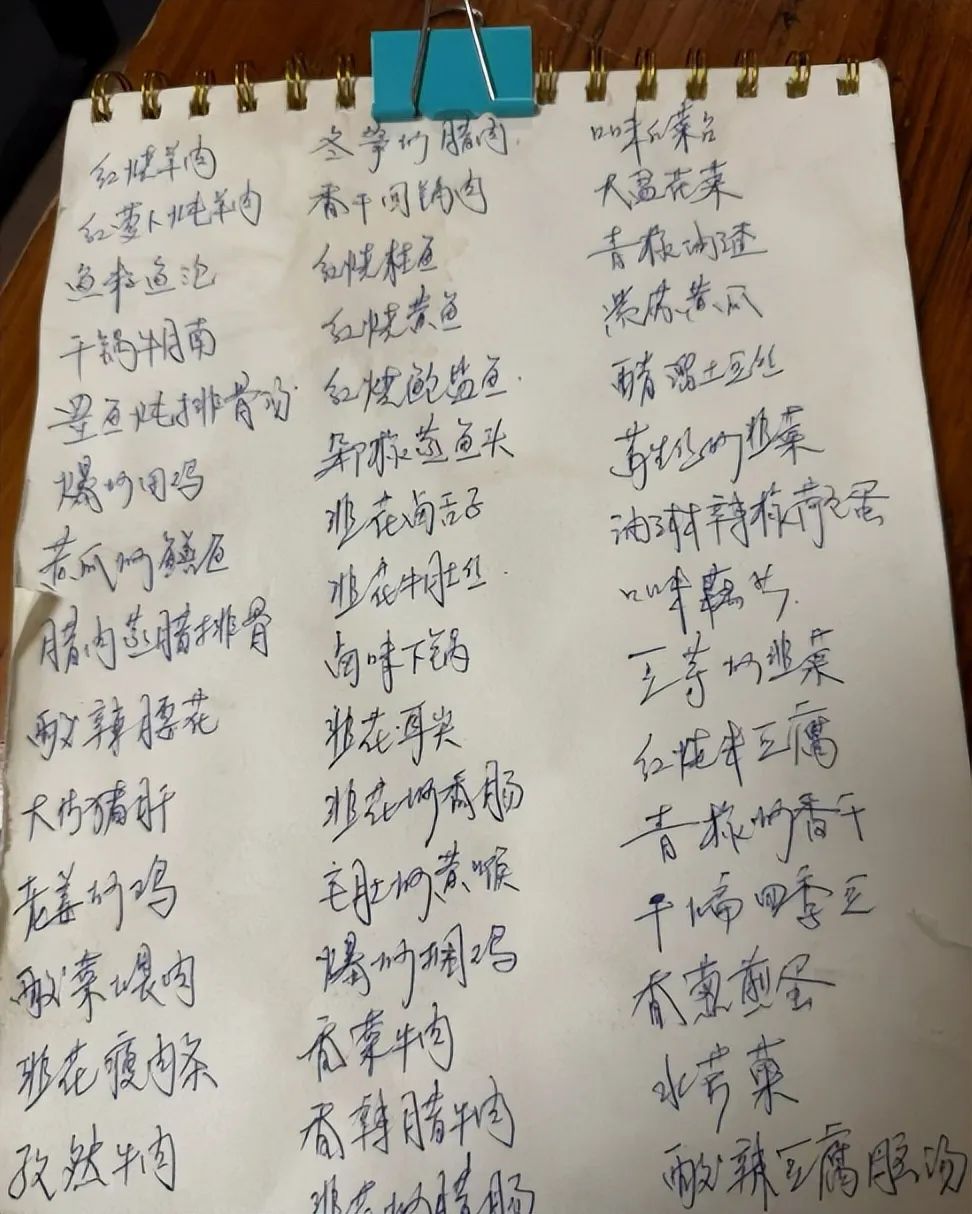 红烧羊肉
红萝卜炖羊肉
鱼籽鱼泡
干锅牛腩
墨鱼炖排骨汤
爆炒田鸡
苦瓜炒鳝鱼
腊肉蒸腊排骨
酸辣腰花
大片猪肝
老姜炒鸡
酸菜煨肉
韭花瘦肉条
孜然牛肉
冬笋炒腊肉
香干回锅肉
红烧桂鱼
红烧黄鱼
红烧鲍盐鱼
剁椒蒸鱼头
韭花卤舌子
韭花牛肚丝
卤味下锅
韭花耳尖
韭花炒香肠
毛肚炒黄喉
爆炒捆鸡
香菜牛肉
香辣腊牛肉
韭花炒腊肠
口味红菜台
大盆花菜
青椒油渣
紫苏黄瓜
醋溜土豆丝
萵笋丝炒韭菜
油淋辣椒荷包蛋
口味藕片
豆芽炒韭菜
红烧米豆腐
青椒炒香干
干煸四季豆
香葱煎蛋
水芹菜
酸辣豆腐脑汤